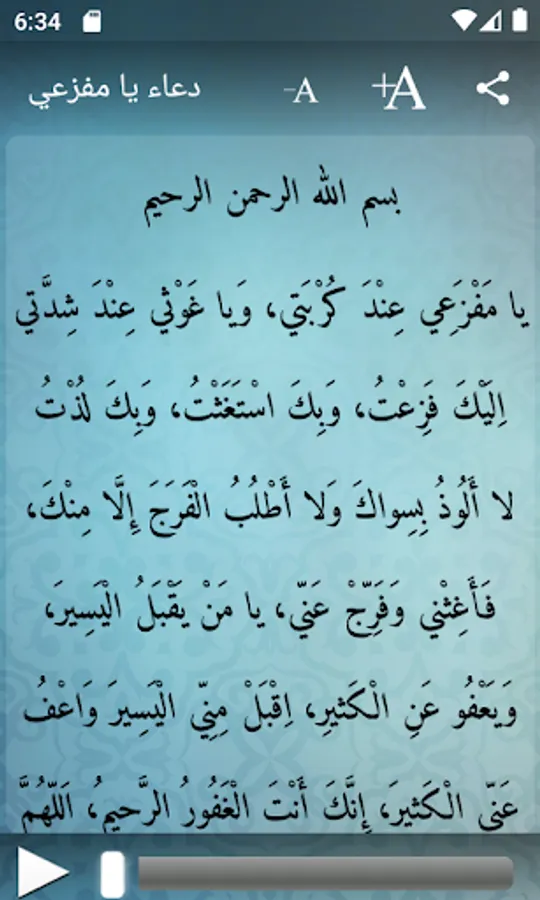 6:34
دعاء يا مفزعي
-A
+A
بسم الله الرحمن الرحيم
يا مَفْزَعِي عِنْدَ كُرْبَتِي، وَيا غَوْثي عِنْدَ شِدَّتي
اِلَيْكَ فَزِعْتُ، وَبِكَ اسْتَغَثْتُ، وَبِكَ لُذْتُ
لا أَلُوذُ بِسِواكَ وَلا أَطْلُبُ الْفَرَجَ إِلَّا مِنْكَ،
فَأَغِثْني وَفَرِّجْ عَنّي، يا مَنْ يَقْبَلُ الْيَسِيرَ،
وَيَعْفُو عَنِ الْكَثيرِ، اِقْبَلْ مِنِّي الْيَسِيرَ وَاعْفُ
عَنّي الْكَثيرَ، إِنَّكَ أَنْتَ الْغَفُورُ الرَّحيمُ، اَللّهُمَّ